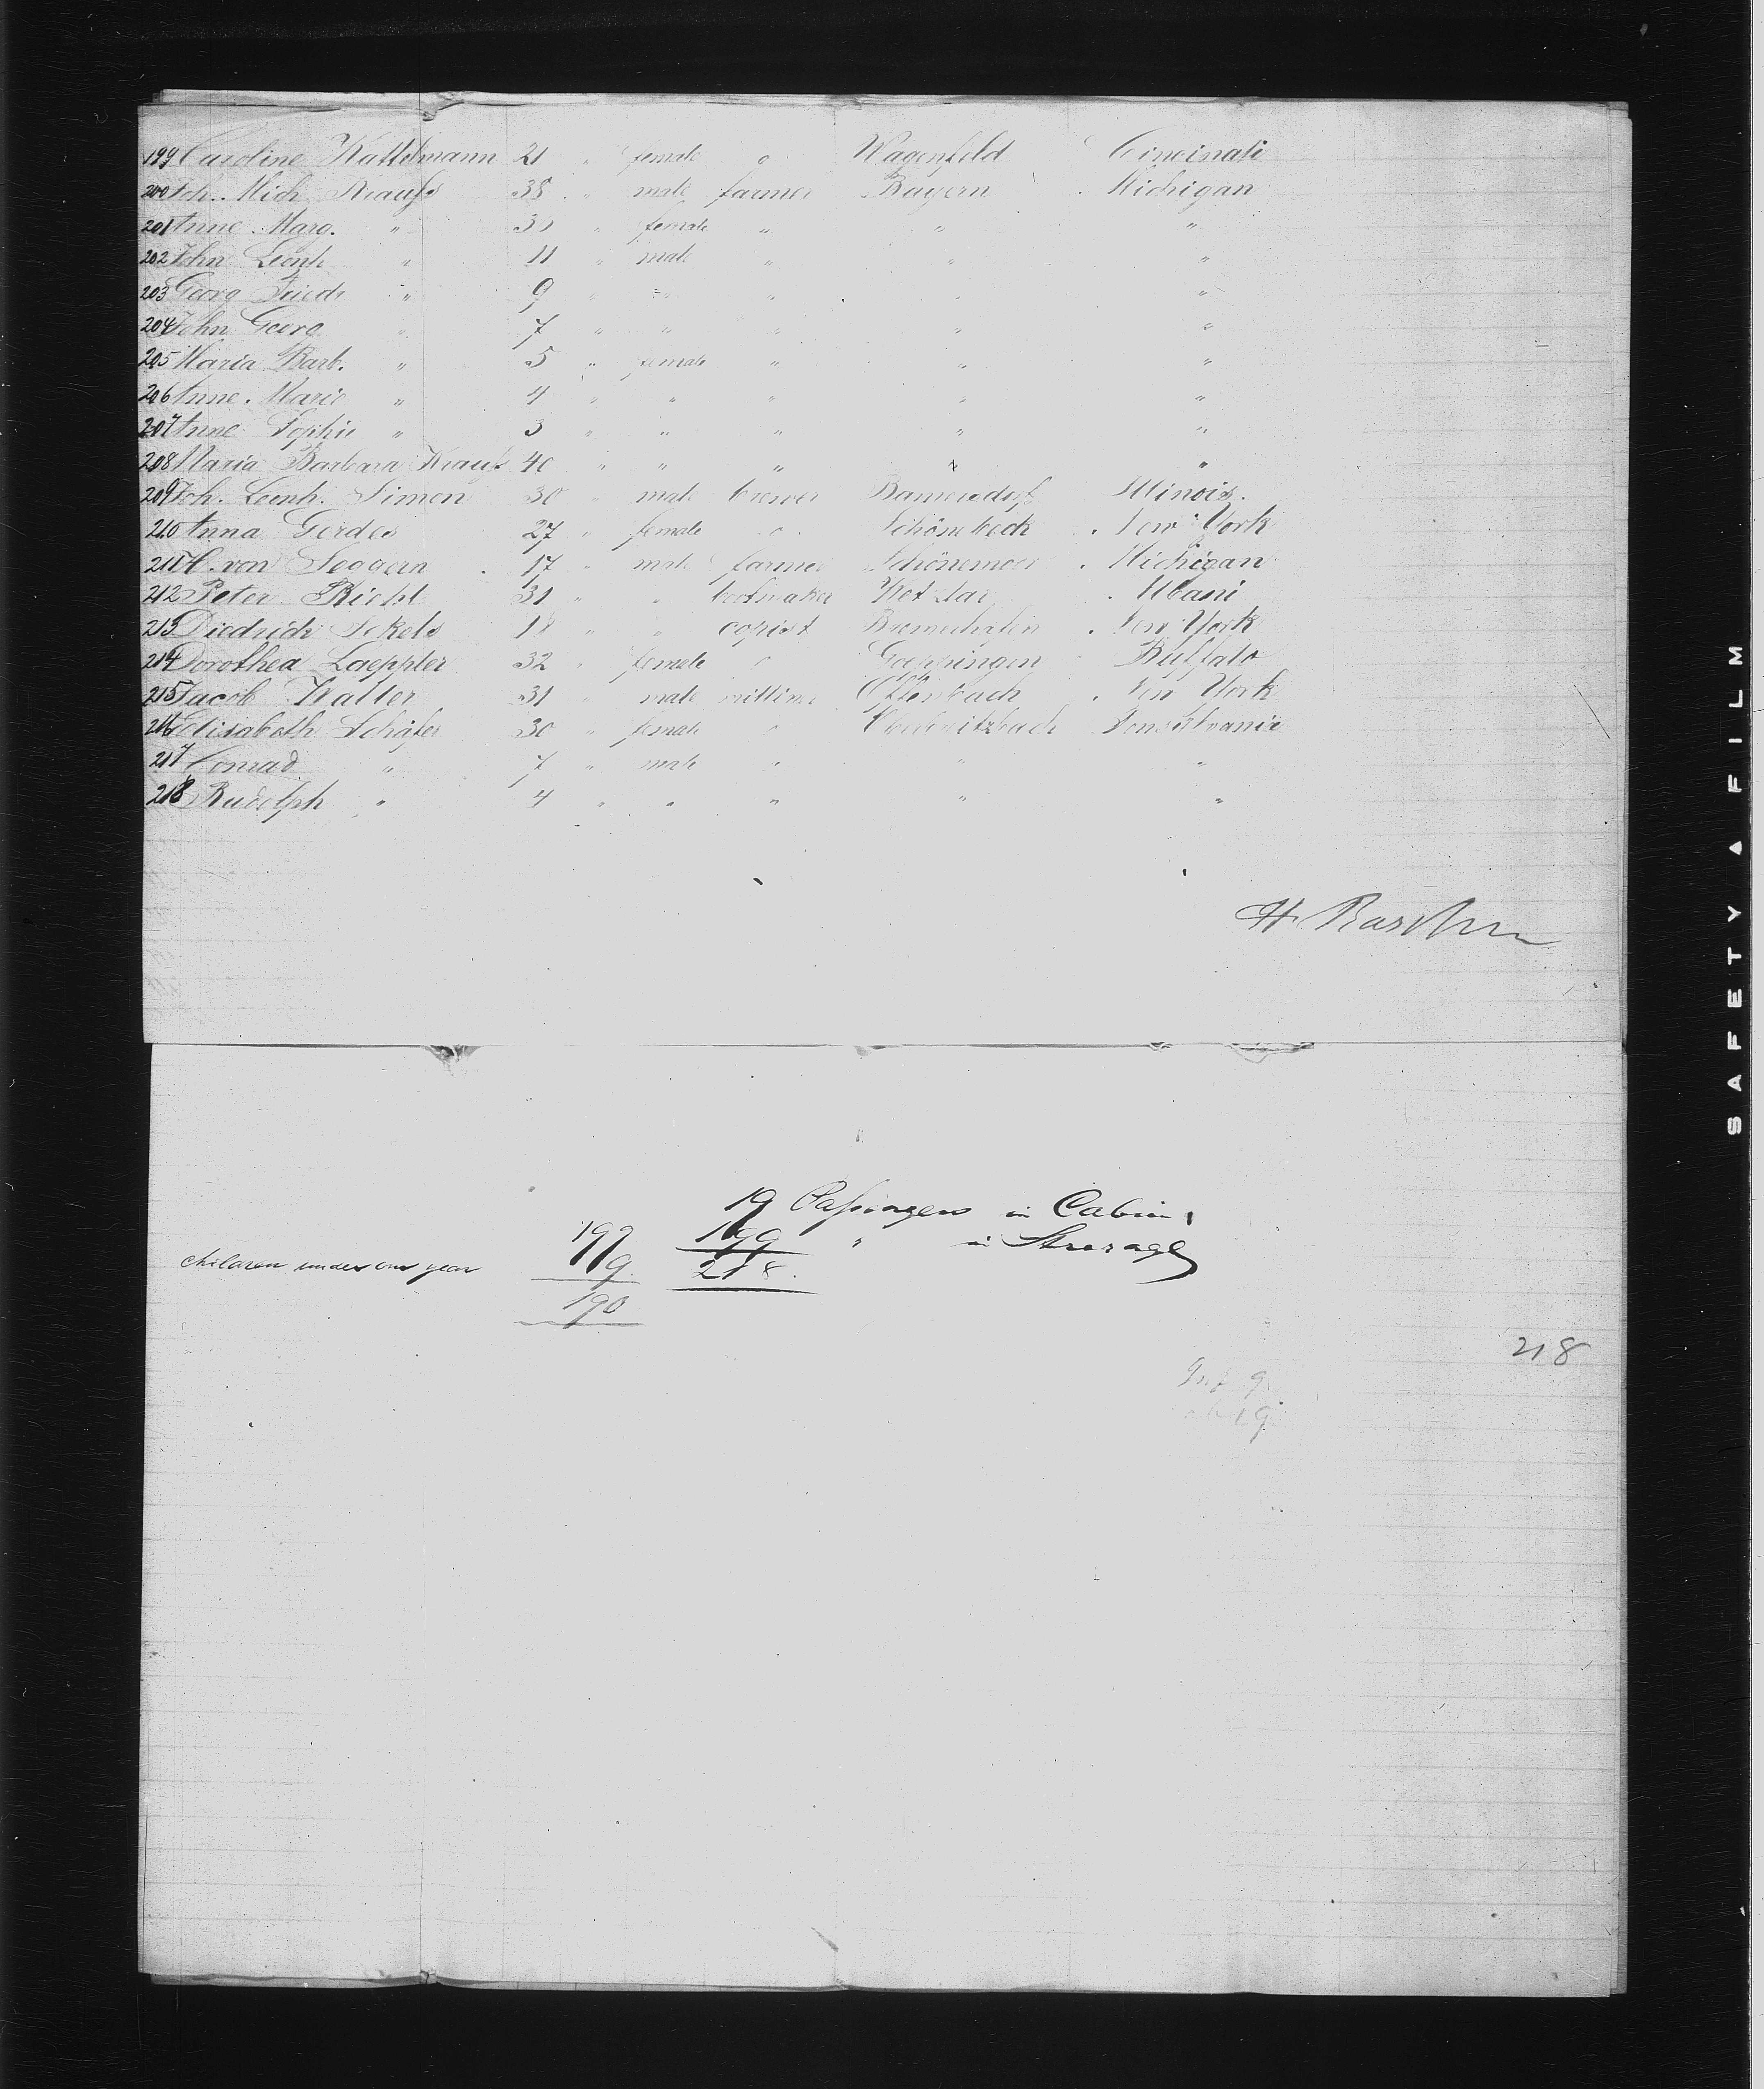 199 Caroline Kattelmann 21 " female o Wagenfeld Cincinati
200 Joh. Mich. Krauss 38 " male farmer Bayern Michigan
201 Anne Marg. " " female " " "
202 John Leonh " 11 " male " " "
203 Georg Friedr " 9 " " " " "
204 John Georg " 7 " " " " "
205 Maria Barb. " 5 " female " " "
206 Anne Marie " 4 " " " " "
207 Anne Sophie " 3 " " " " "
208 Maria Barbara Krauss 40 " " " " "
209 Joh. Leonh. Simon 30 " male brewer Illinois.
210 Anna Gerdes 27 " female o Schönebeck New York
211 H. von Seggern 17 " male farmer Schönemoor Michigan
212 Peter Richl 31 " " bootmaker Wetzlar Albani
213 Diedrich Sekels 18 " " copist Bremerhafen New York
214 Dorothea Laeppler 32 " female o Goeppingen Buffalo
215 Jacob Walter 31 male Offenbach New York
216 Elisabeth Schäfer 30 " female o Pensilvania
217 Conrad " 7 " male " " "
218 Rudolph " 4 " " " " "
H.
19 Passingers in Cabin
199 " in Steerage
children under one year 199 9 218.
190
218
9
19
SAFETY ▲ FILM